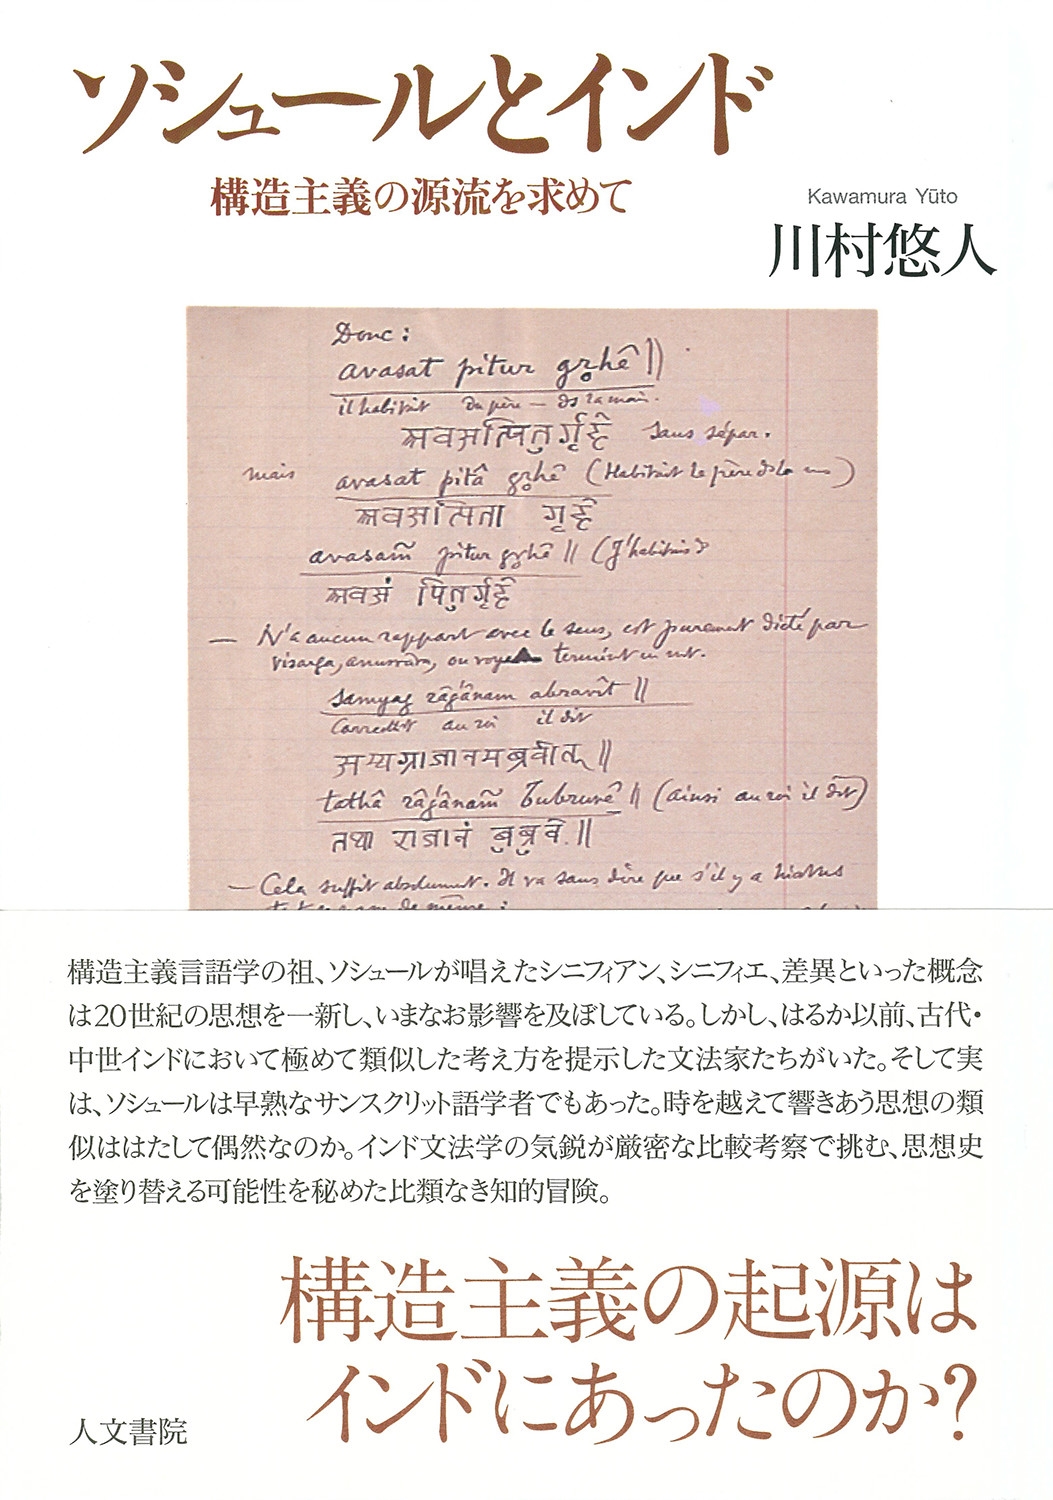 ソシュールとインド
構造主義の源流を求めて
Kawamura Yūto
川村悠人
Donc :
avasat pitur gr̥hê ||
il habitait du père — ds la mais.
अवसत्पितुर्गृहे sans sépar.
mais avasat pitâ gr̥hê (Habitait le père ds la)
अवसत्पिता गृहे
avasam̃ pitur gr̥hê || (J'habitais d
अवसं पितुर्गृहे
— N'a aucun rapport avec le sens, est purement dicté par
visarga, anusvâra, ou
samyag râǵânam abravît ||
Correctt au roi il dit
सम्यग्राजानमब्रवीत् ||
tathâ râǵânam̃ bubruvê || (ainsi au roi il dit)
तथा राजानं बुब्रुवे ||
— Cela suffit absolument. Il va sans dire que s'il y a hiatus
de même :
構造主義言語学の祖、ソシュールが唱えたシニフィアン、シニフィエ、差異といった概念
は20世紀の思想を一新し、いまなお影響を及ぼしている。しかし、はるか以前、古代・
中世インドにおいて極めて類似した考え方を提示した文法家たちがいた。そして実
は、ソシュールは早熟なサンスクリット語学者でもあった。時を越えて響きあう思想の類
似ははたして偶然なのか。インド文法学の気鋭が厳密な比較考察で挑む、思想史
を塗り替える可能性を秘めた比類なき知的冒険。
構造主義の起源は
インドにあったのか?
人文書院